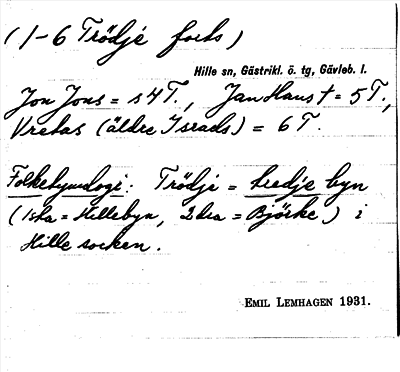 (1-6 Trödje forts)
Hille sn, Gästrikl. ö. tg, Gävleb. l.
Jon Jons = s 4 T., Jan Hans t = 5 T.,
Vretas (äldre Israels) = 6 T.
Folketymologi: Trödje = tredje byn
(1sta = Hillebyn, 2dra = Björke) i
Hille socken.
EMIL LEMHAGEN 1931.